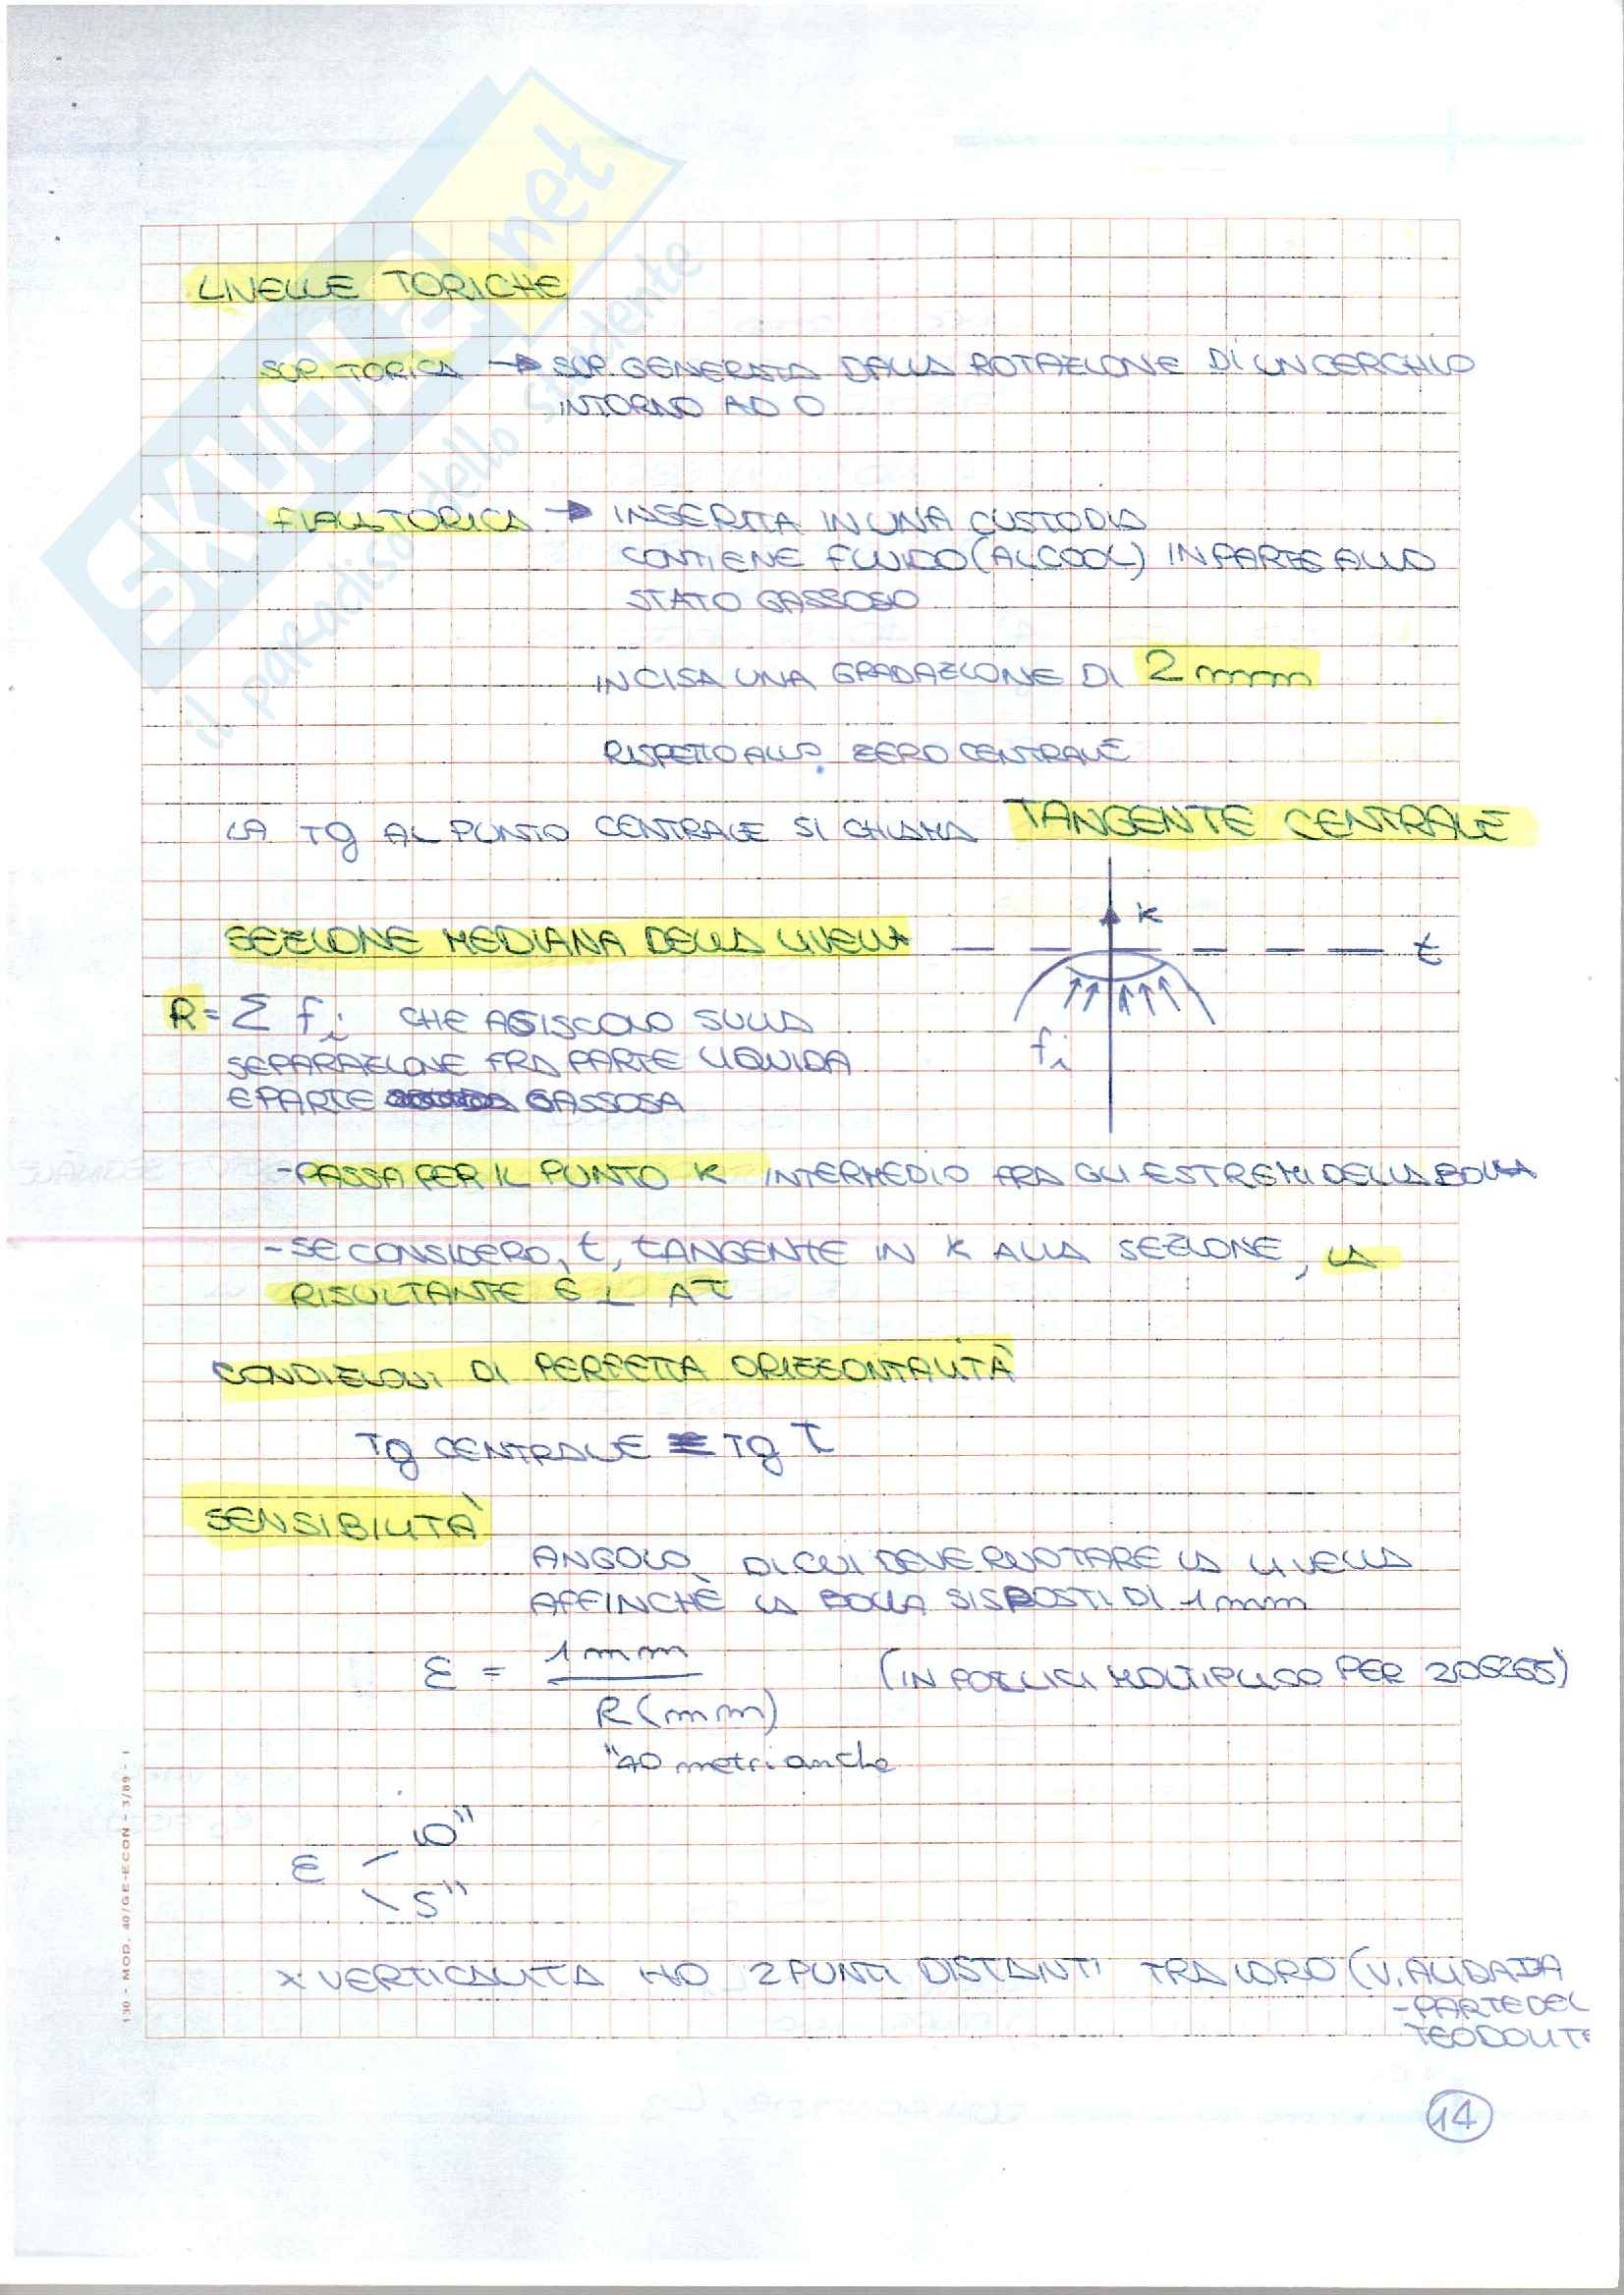 LIVELLE TORICHE
SUP. TORICA → SUP. GENERATA DALLA ROTAZIONE DI UN CERCHIO
INTORNO AD O
FIALA TORICA → INSERITA IN UNA CUSTODIA
CONTIENE FLUIDO (ALCOOL) IN PARTE ALLO
STATO GASSOSO
INCISA UNA GRADAZIONE DI 2 mm
RISPETTO ALLO ZERO CENTRALE
LA Tg AL PUNTO CENTRALE SI CHIAMA TANGENTE CENTRALE
K
SEZIONE MEDIANA DELLA LIVELLA
t
R = Σ fi CHE AGISCONO SULLA
fi
SEPARAZIONE FRA PARTE LIQUIDA
E PARTE GASSOSA
- PASSA PER IL PUNTO K INTERMEDIO FRA GLI ESTREMI DELLA BOLLA
- SE CONSIDERO, t, TANGENTE IN K ALLA SEZIONE, LA
RISULTANTE È ⊥ A t
CONDIZIONI DI PERFETTA ORIZZONTALITÀ
Tg CENTRALE ≡ Tg t
SENSIBILITÀ
ANGOLO DI CUI DEVE RUOTARE LA LIVELLA
AFFINCHÈ LA BOLLA SI SPOSTI DI 1mm
ε = 1mm / R(mm) (IN POLLICI MOLTIPLICO PER 206265)
40 metri anche
ε
10"
5"
X VERTICALITÀ HO 2 PUNTI DISTANTI TRA LORO (V. ALIDADA
- PARTE DEL
TEODOLITE
14
130 - MOD. 40/GE-ECON - 3/89 - 1
SKUOLA.net
il paradiso dello studente